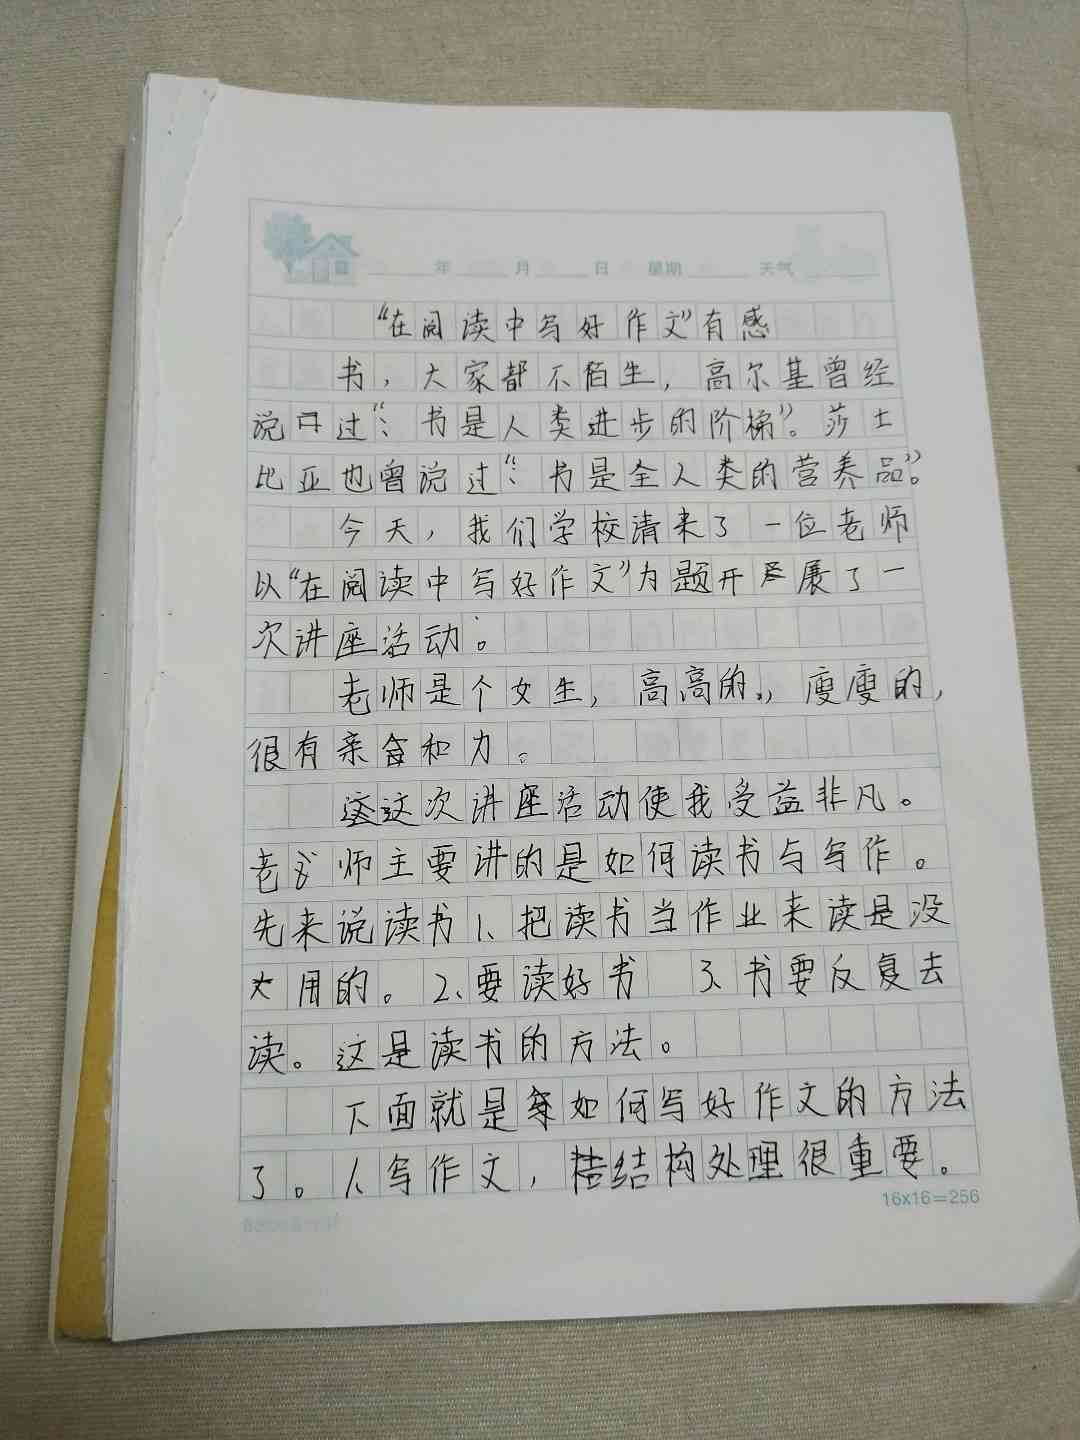 年 月 日 星期 天气
“在阅读中写好作文”有感
书，大家都不陌生，高尔基曾经
说过“：书是人类进步的阶梯”。莎士
比亚也曾说过“：书是全人类的营养品”。
今天，我们学校请来了一位老师
以“在阅读中写好作文”为题开展了一
次讲座活动。
老师是个女生，高高的，瘦瘦的，
很有亲和力。
这次讲座活动使我受益非凡。
老师主要讲的是如何读书与写作。
先来说读书1、把读书当作业来读是没
大用的。2、要读好书 3、书要反复去
读。这是读书的方法。
下面就是如何写好作文的方法
了。1、写作文，结构处理很重要。
16x16=256